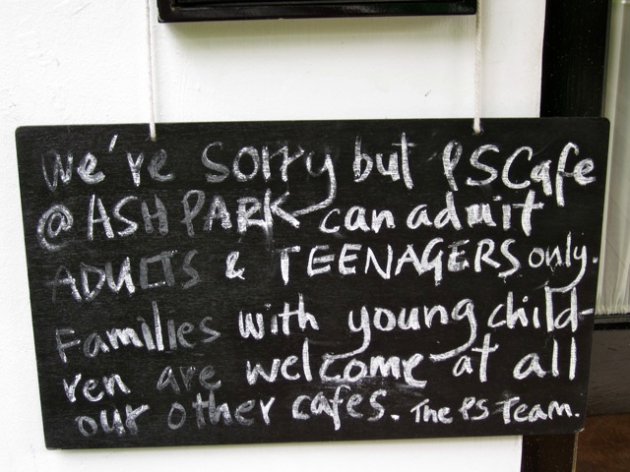 We've Sorry but PSCafe
@ ASH PARK can admit
ADULTS & TEENAGERS only.
Families with young child-
ren are welcome at all
our other cafes. The PS Team.